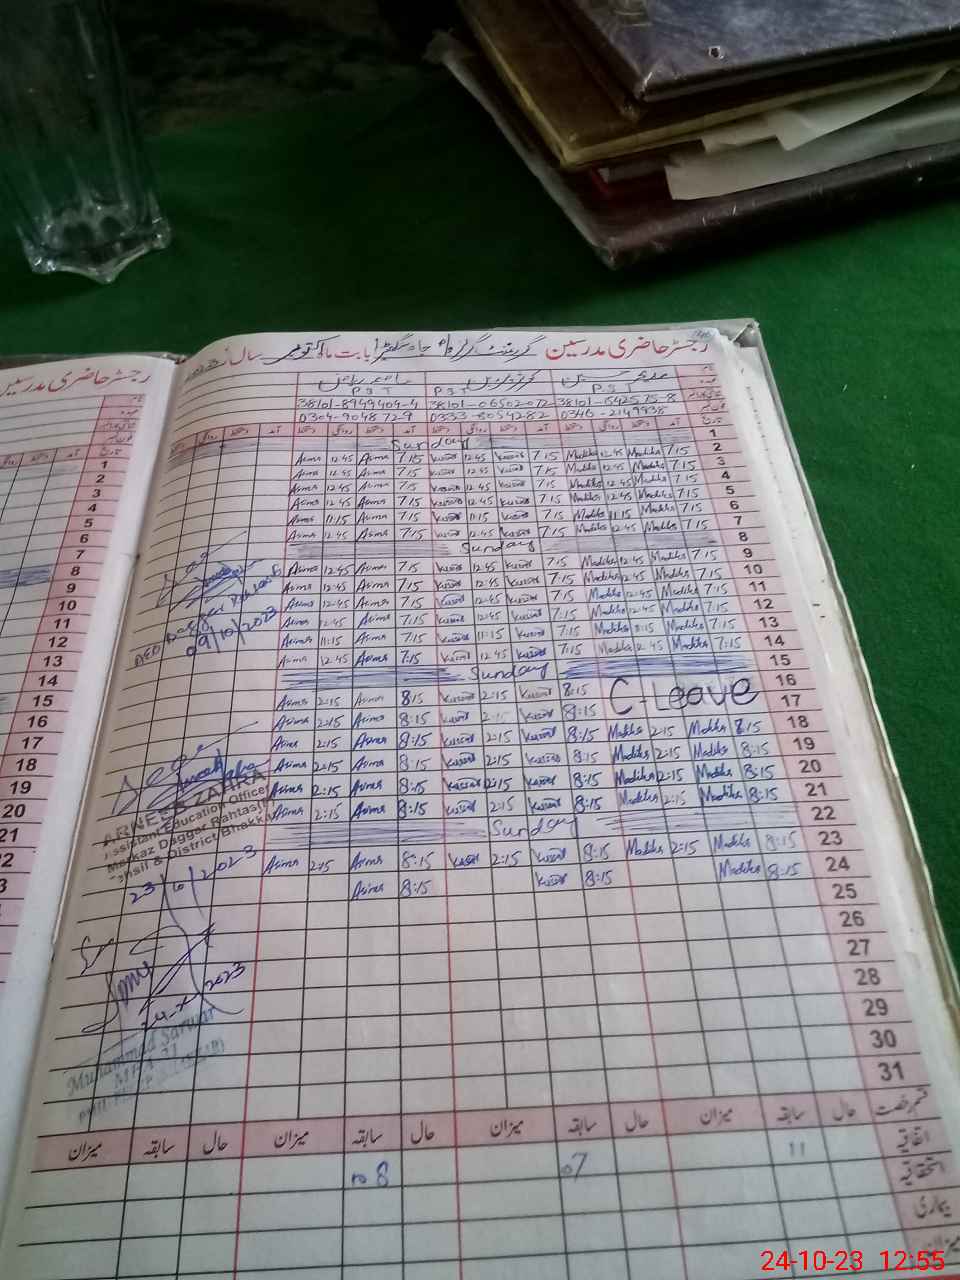 رجسٹر حاضری مدرسین گورنمنٹ گرلز بابت ماہ اکتوبر سال 2023
رجسٹر حاضری مدرسین
PST PST PST
38101-8949404-4 38101-0650207-2 38101-1542575-8
0304-9048729 0333-8054282 0346-2149938
تاریخ آمد دستخط روانگی دستخط آمد دستخط روانگی دستخط آمد دستخط روانگی دستخط
Sunday 1
Asma 12:45 Asma 7:15 Kusar 12:45 Kusar 7:15 Madiha 12:45 Madiha 7:15 2
Asma 12:45 Asma 7:15 Kusar 12:45 Kusar 7:15 Madiha 12:45 Madiha 7:15 3
Asma 12:45 Asma 7:15 Kusar 12:45 Kusar 7:15 Madiha 12:45 Madiha 7:15 4
Asma 12:45 Asma 7:15 Kusar 12:45 Kusar 7:15 Madiha 12:45 Madiha 7:15 5
Asma 11:15 Asma 7:15 Kusar 11:15 Kusar 7:15 Madiha 11:15 Madiha 7:15 6
Asma 12:45 Asma 7:15 Kusar 12:45 Kusar 7:15 Madiha 12:45 Madiha 7:15 7
Sunday 8
Asma 12:45 Asma 7:15 Kusar 12:45 Kusar 7:15 Madiha 12:45 Madiha 7:15 9
Asma 12:45 Asma 7:15 Kusar 12:45 Kusar 7:15 Madiha 12:45 Madiha 7:15 10
Asma 12:45 Asma 7:15 Kusar 12:45 Kusar 7:15 Madiha 12:45 Madiha 7:15 11
Asma 12:45 Asma 7:15 Kusar 12:45 Kusar 7:15 Madiha 12:45 Madiha 7:15 12
Asma 11:15 Asma 7:15 Kusar 11:15 Kusar 7:15 Madiha 11:15 Madiha 7:15 13
Asma 12:45 Asma 7:15 Kusar 12:45 Kusar 7:15 Madiha 12:45 Madiha 7:15 14
Sunday 15
Asma 2:15 Asma 8:15 Kusar 2:15 Kusar 8:15 C-Leave 16
Asma 2:15 Asma 8:15 Kusar 2:15 Kusar 8:15 Madiha 2:15 Madiha 8:15 17
Asma 2:15 Asma 8:15 Kusar 2:15 Kusar 8:15 Madiha 2:15 Madiha 8:15 18
Asma 2:15 Asma 8:15 Kusar 2:15 Kusar 8:15 Madiha 2:15 Madiha 8:15 19
Asma 2:15 Asma 8:15 Kusar 2:15 Kusar 8:15 Madiha 2:15 Madiha 8:15 20
Asma 2:15 Asma 8:15 Kusar 2:15 Kusar 8:15 Madiha 2:15 Madiha 8:15 21
Sunday 22
Asma 2:15 Asma 8:15 Kusar 2:15 Kusar 8:15 Madiha 2:15 Madiha 8:15 23
Asma 8:15 Kusar 8:15 Madiha 8:15 24
25
26
27
28
29
30
31
AEO
09/10/2023
ARNEEB ZAHRA
Assistant Education Officer
Markaz Daggar Rahtas
Tehsil & District Bhakkar
23/10/2023
24-X-2023
Muhammad Sarwar
قسم رخصت حال سابقہ میزان حال سابقہ میزان حال سابقہ میزان
اتفاقیہ 11
استحقاقیہ 07 08
بیماری
میزان
1
2
3
4
5
6
7
8
9
10
11
12
13
14
15
16
17
18
19
20
21
24-10-23 12:55